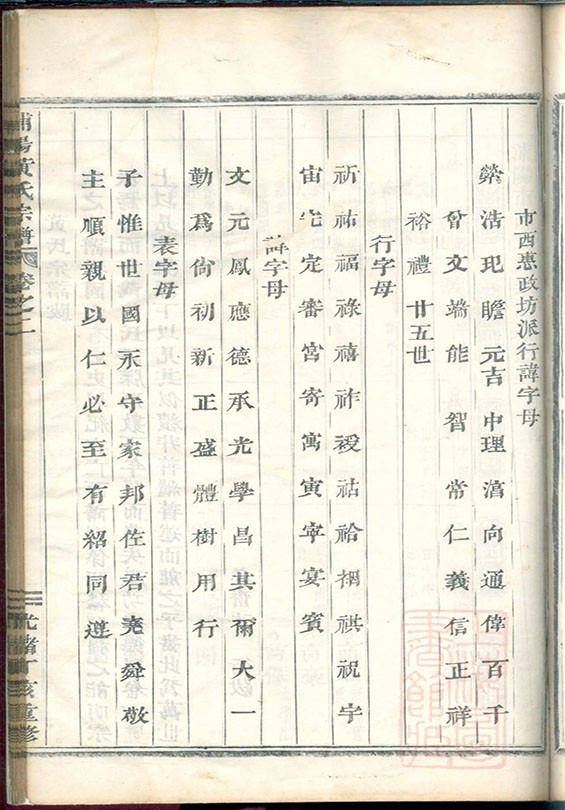 市西惠政坊派行諱字母
榮浩玘瞻元吉中理滈向通偉百千
曾文端能智常仁義信正祥
裕禮廿五世
行字母
祈祐福祿禧祚祲祜祫祵祺祝字
宙宅定審宮寄寓寅寧宴賓
諱字母
文元鳳應德承光學昌其爾大一
勤爲尙初新正盛體樹用行
表字母
子惟世國永守家邦佐君堯舜敬
主順親以仁必至有紹同遵
浦陽黃氏宗譜 卷之二
光緒丁亥重修